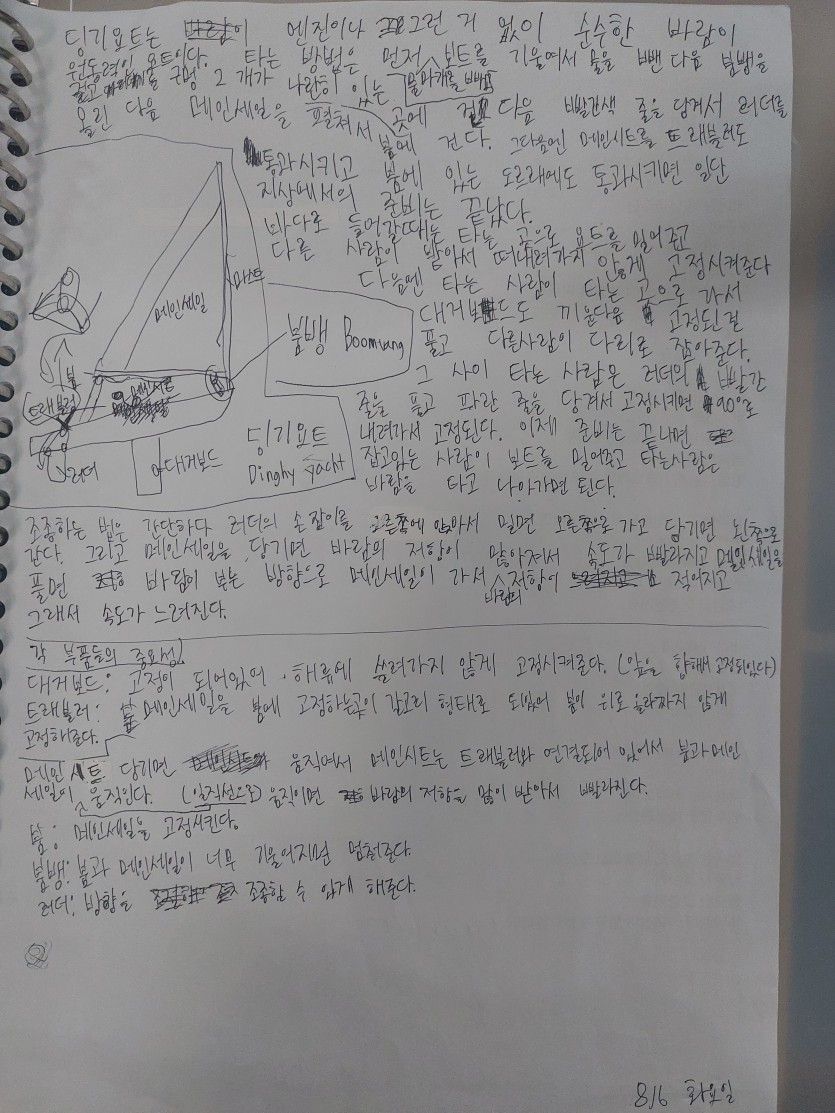 딩기요트는 엔진이나 그런 거 없이 순수한 바람이
원동력인 요트이다. 타는 방법은 먼저 보트를 기울여서 물을 뺀 다음 붐뱅을
걸고 구멍 2개가 나란히 있는 물마개를 빼
올린 다음 메인세일을 펼쳐서 곳에 건 다음 빨간색 줄을 당겨서 러더를
붐에 건다. 그다음엔 메인시트를 트래블러도
통과시키고 붐에 있는 도르래에도 통과시키면 일단
지상에서의 준비는 끝났다.
바다로 들어갈때는 타는 곳으로 요트를 밀어주고
다른 사람이 받아서 떠내려가지 않게 고정시켜준다
다음엔 타는 사람이 타는 곳으로 가서
대거보드도 끼운다음 고정된걸
풀고 다른사람이 다리로 잡아준다.
그 사이 타는 사람은 러더의 빨간
줄을 풀고 파란 줄을 당겨서 고정시키면 90°로
내려가서 고정된다. 이제 준비는 끝나면
잡고있는 사람이 보트를 밀어주고 타는사람은
바람을 타고 나아가면 된다.
마스트
메인세일
붐뱅 Boomvang
붐
메인시트
트래블러
러더
대거보드
딩기요트
Dinghy yacht
조종하는 법은 간단하다 러더의 손잡이를 오른쪽에 앉아서 밀면 오른쪽으로 가고 당기면 왼쪽으로
간다. 그리고 메인세일을 당기면 바람의 저항이 많아져서 속도가 빨라지고 메인세일을
풀면 바람이 부는 방향으로 메인세일이 가서 바람의 저항이 적어지고
그래서 속도가 느려진다.
각 부품들의 중요성
대거보드: 고정이 되어있어 해류에 쓸려가지 않게 고정시켜준다. (앞을 향해 고정되있다)
트래블러: 메인세일을 붐에 고정하는곳이 갈고리 형태로 되있어 붐이 위로 올라까지 않게
고정해준다.
메인시트 당기면 움직여서 메인시트는 트래블러와 연결되어 있어서 붐과 메인
세일이 움직인다. (일직선으로) 움직이면 바람의 저항을 많이 받아서 빨라진다.
붐: 메인세일을 고정시킨다.
붐뱅: 붐과 메인세일이 너무 기울어지면 멈춰준다.
러더: 방향을 조종할 수 있게 해준다.
8/6 화요일